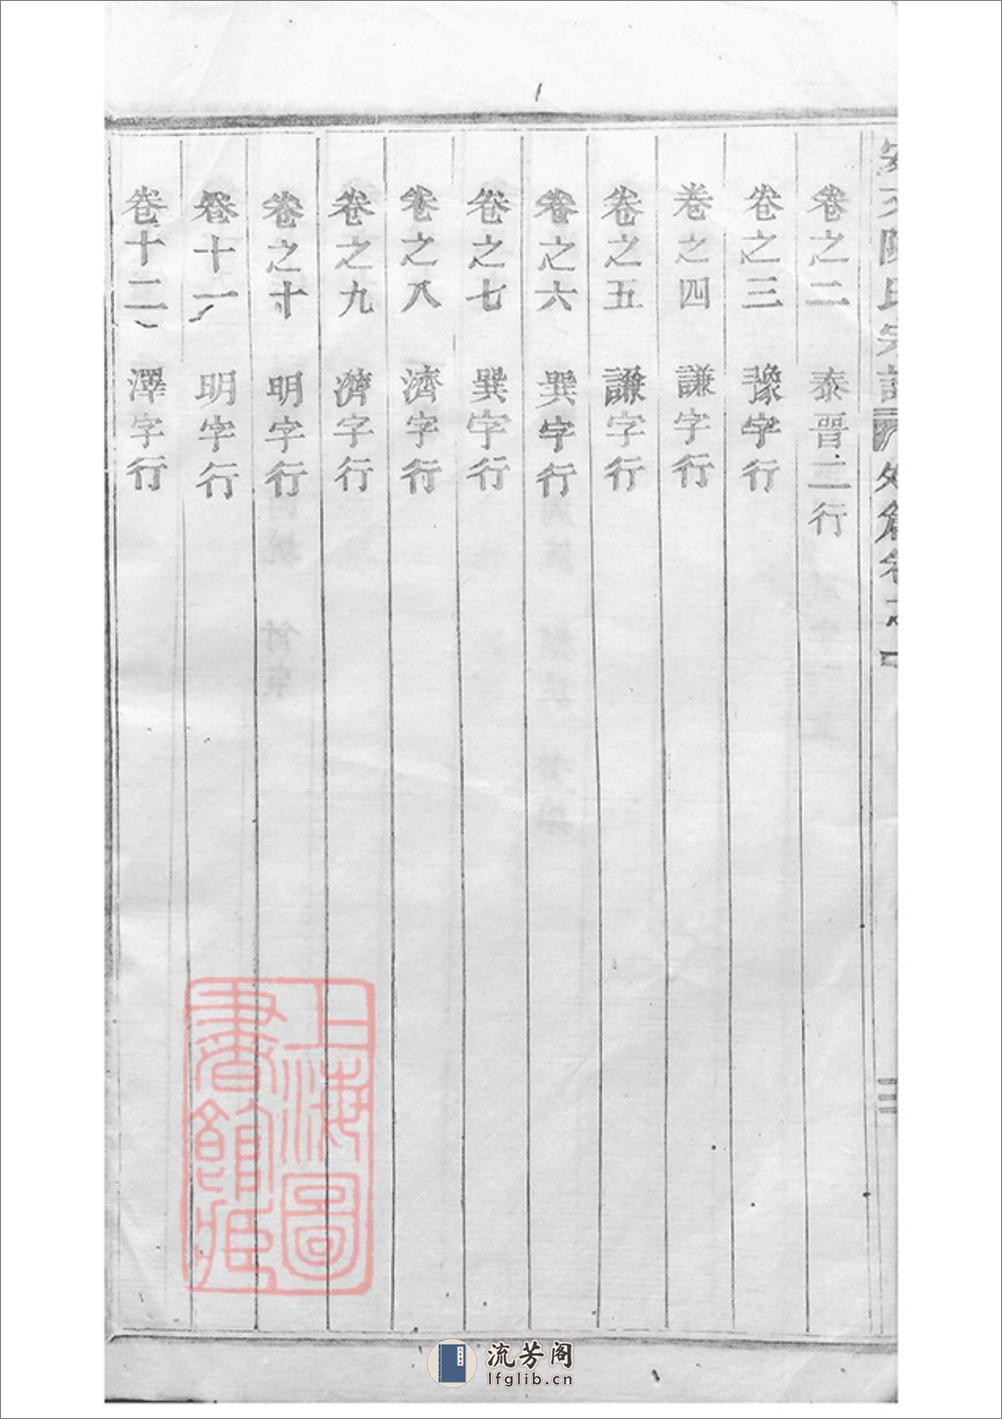 陳氏宗譜 外篇卷之一
三
卷之二 泰晉二行
卷之三 豫字行
卷之四 謙字行
卷之五 謙字行
卷之六 巽字行
卷之七 巽字行
卷之八 濟字行
卷之九 濟字行
卷之十 明字行
卷十一 明字行
卷十二 澤字行
上海圖書館藏
流芳阁
lfglib.cn